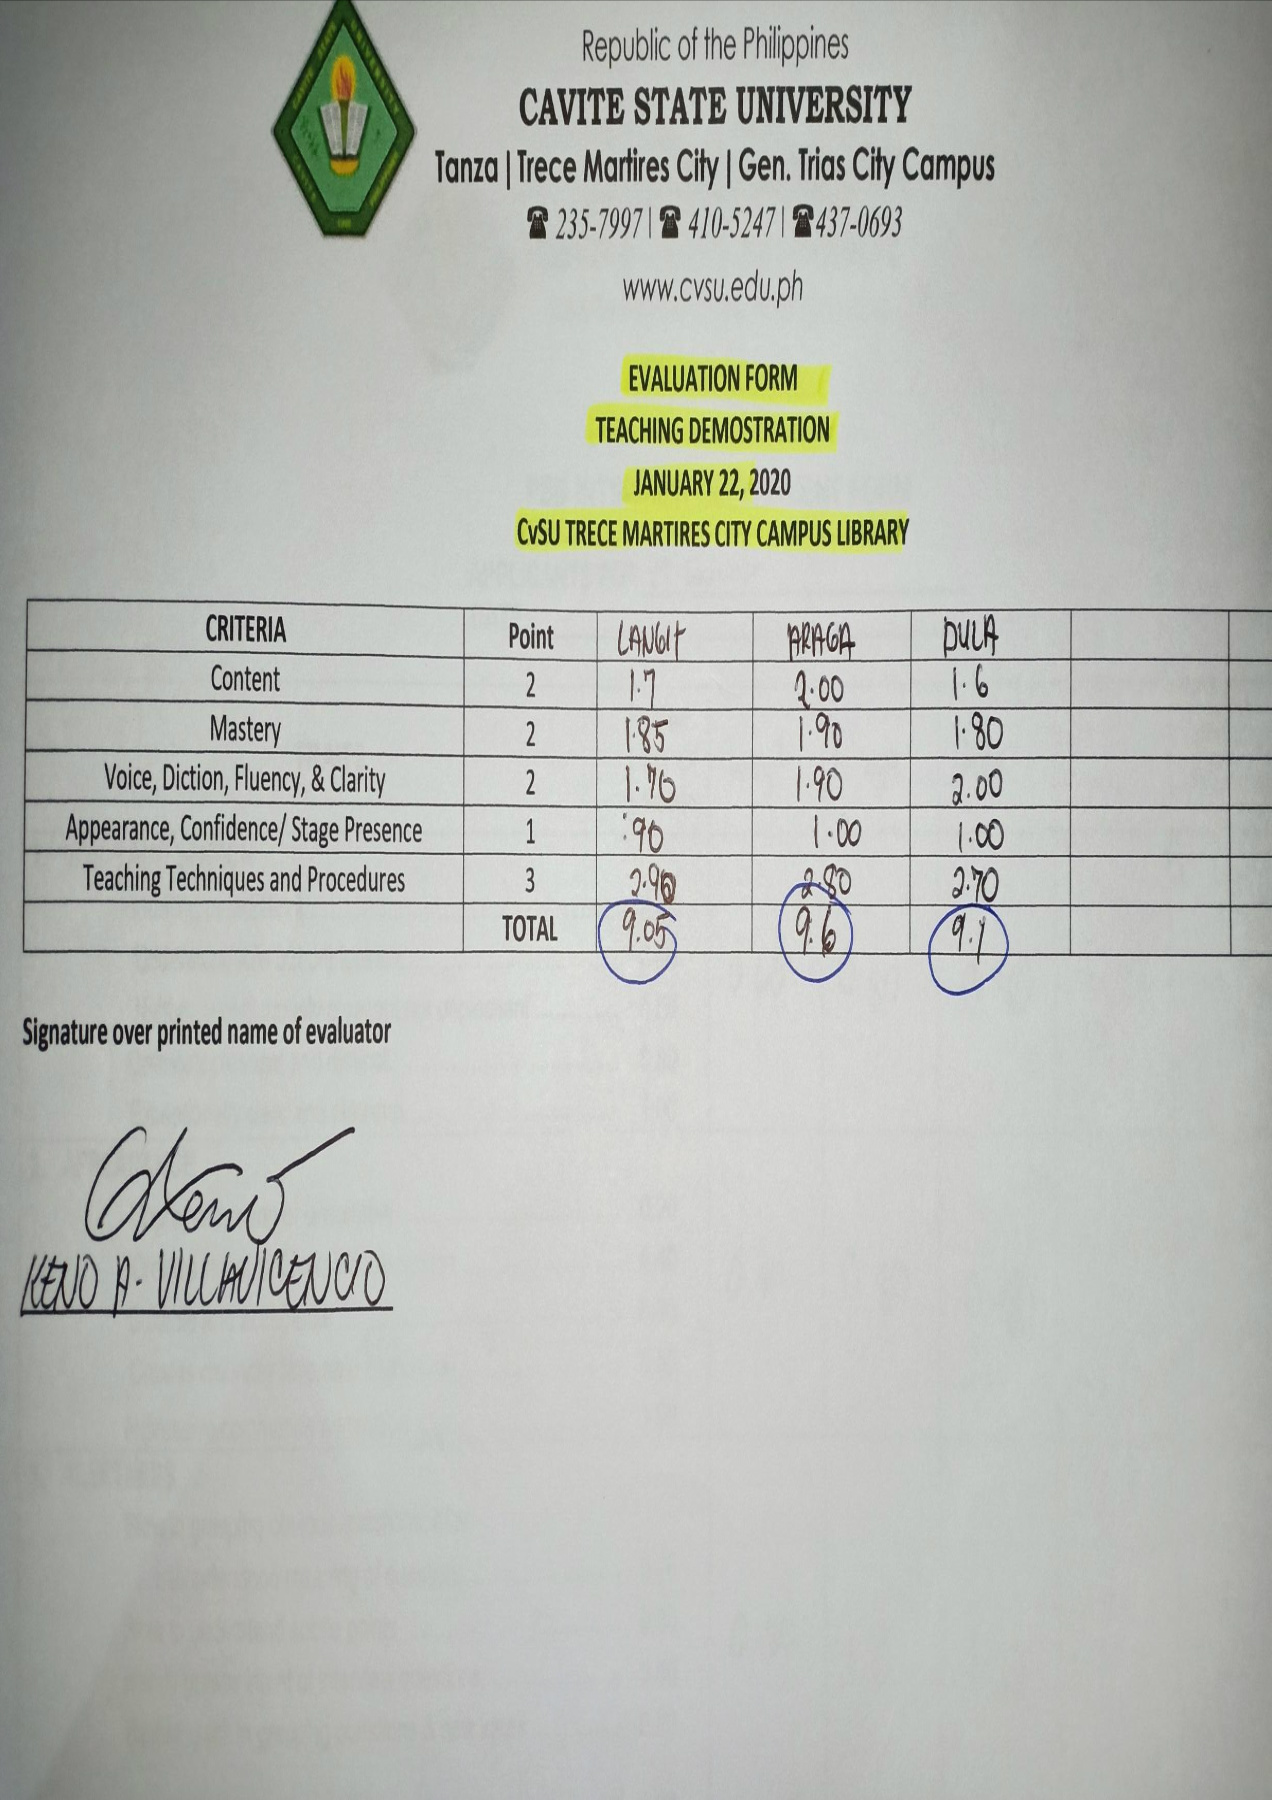 Republic of the Philippines
CAVITE STATE UNIVERSITY
Tanza | Trece Martires City | Gen. Trias City Campus
☎ 235-7997 | ☎ 410-5247 | ☎ 437-0693
www.cvsu.edu.ph
EVALUATION FORM
TEACHING DEMOSTRATION
JANUARY 22, 2020
CvSU TRECE MARTIRES CITY CAMPUS LIBRARY
CRITERIA Point LANGIT ARAGA DULA
Content 2 1.7 2.00 1.6
Mastery 2 1.85 1.90 1.80
Voice, Diction, Fluency, & Clarity 2 1.70 1.90 2.00
Appearance, Confidence/ Stage Presence 1 .90 1.00 1.00
Teaching Techniques and Procedures 3 2.90 2.80 2.70
TOTAL 9.05 9.6 9.1
Signature over printed name of evaluator
KENO A. VILLAVICENCIO